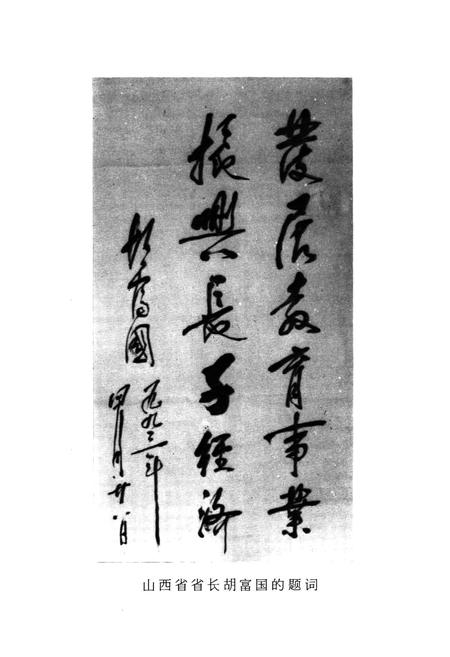 發展教育事業
振興長子經濟
胡富國
一九九三年
四月廿八日
山西省省长胡富国的题词